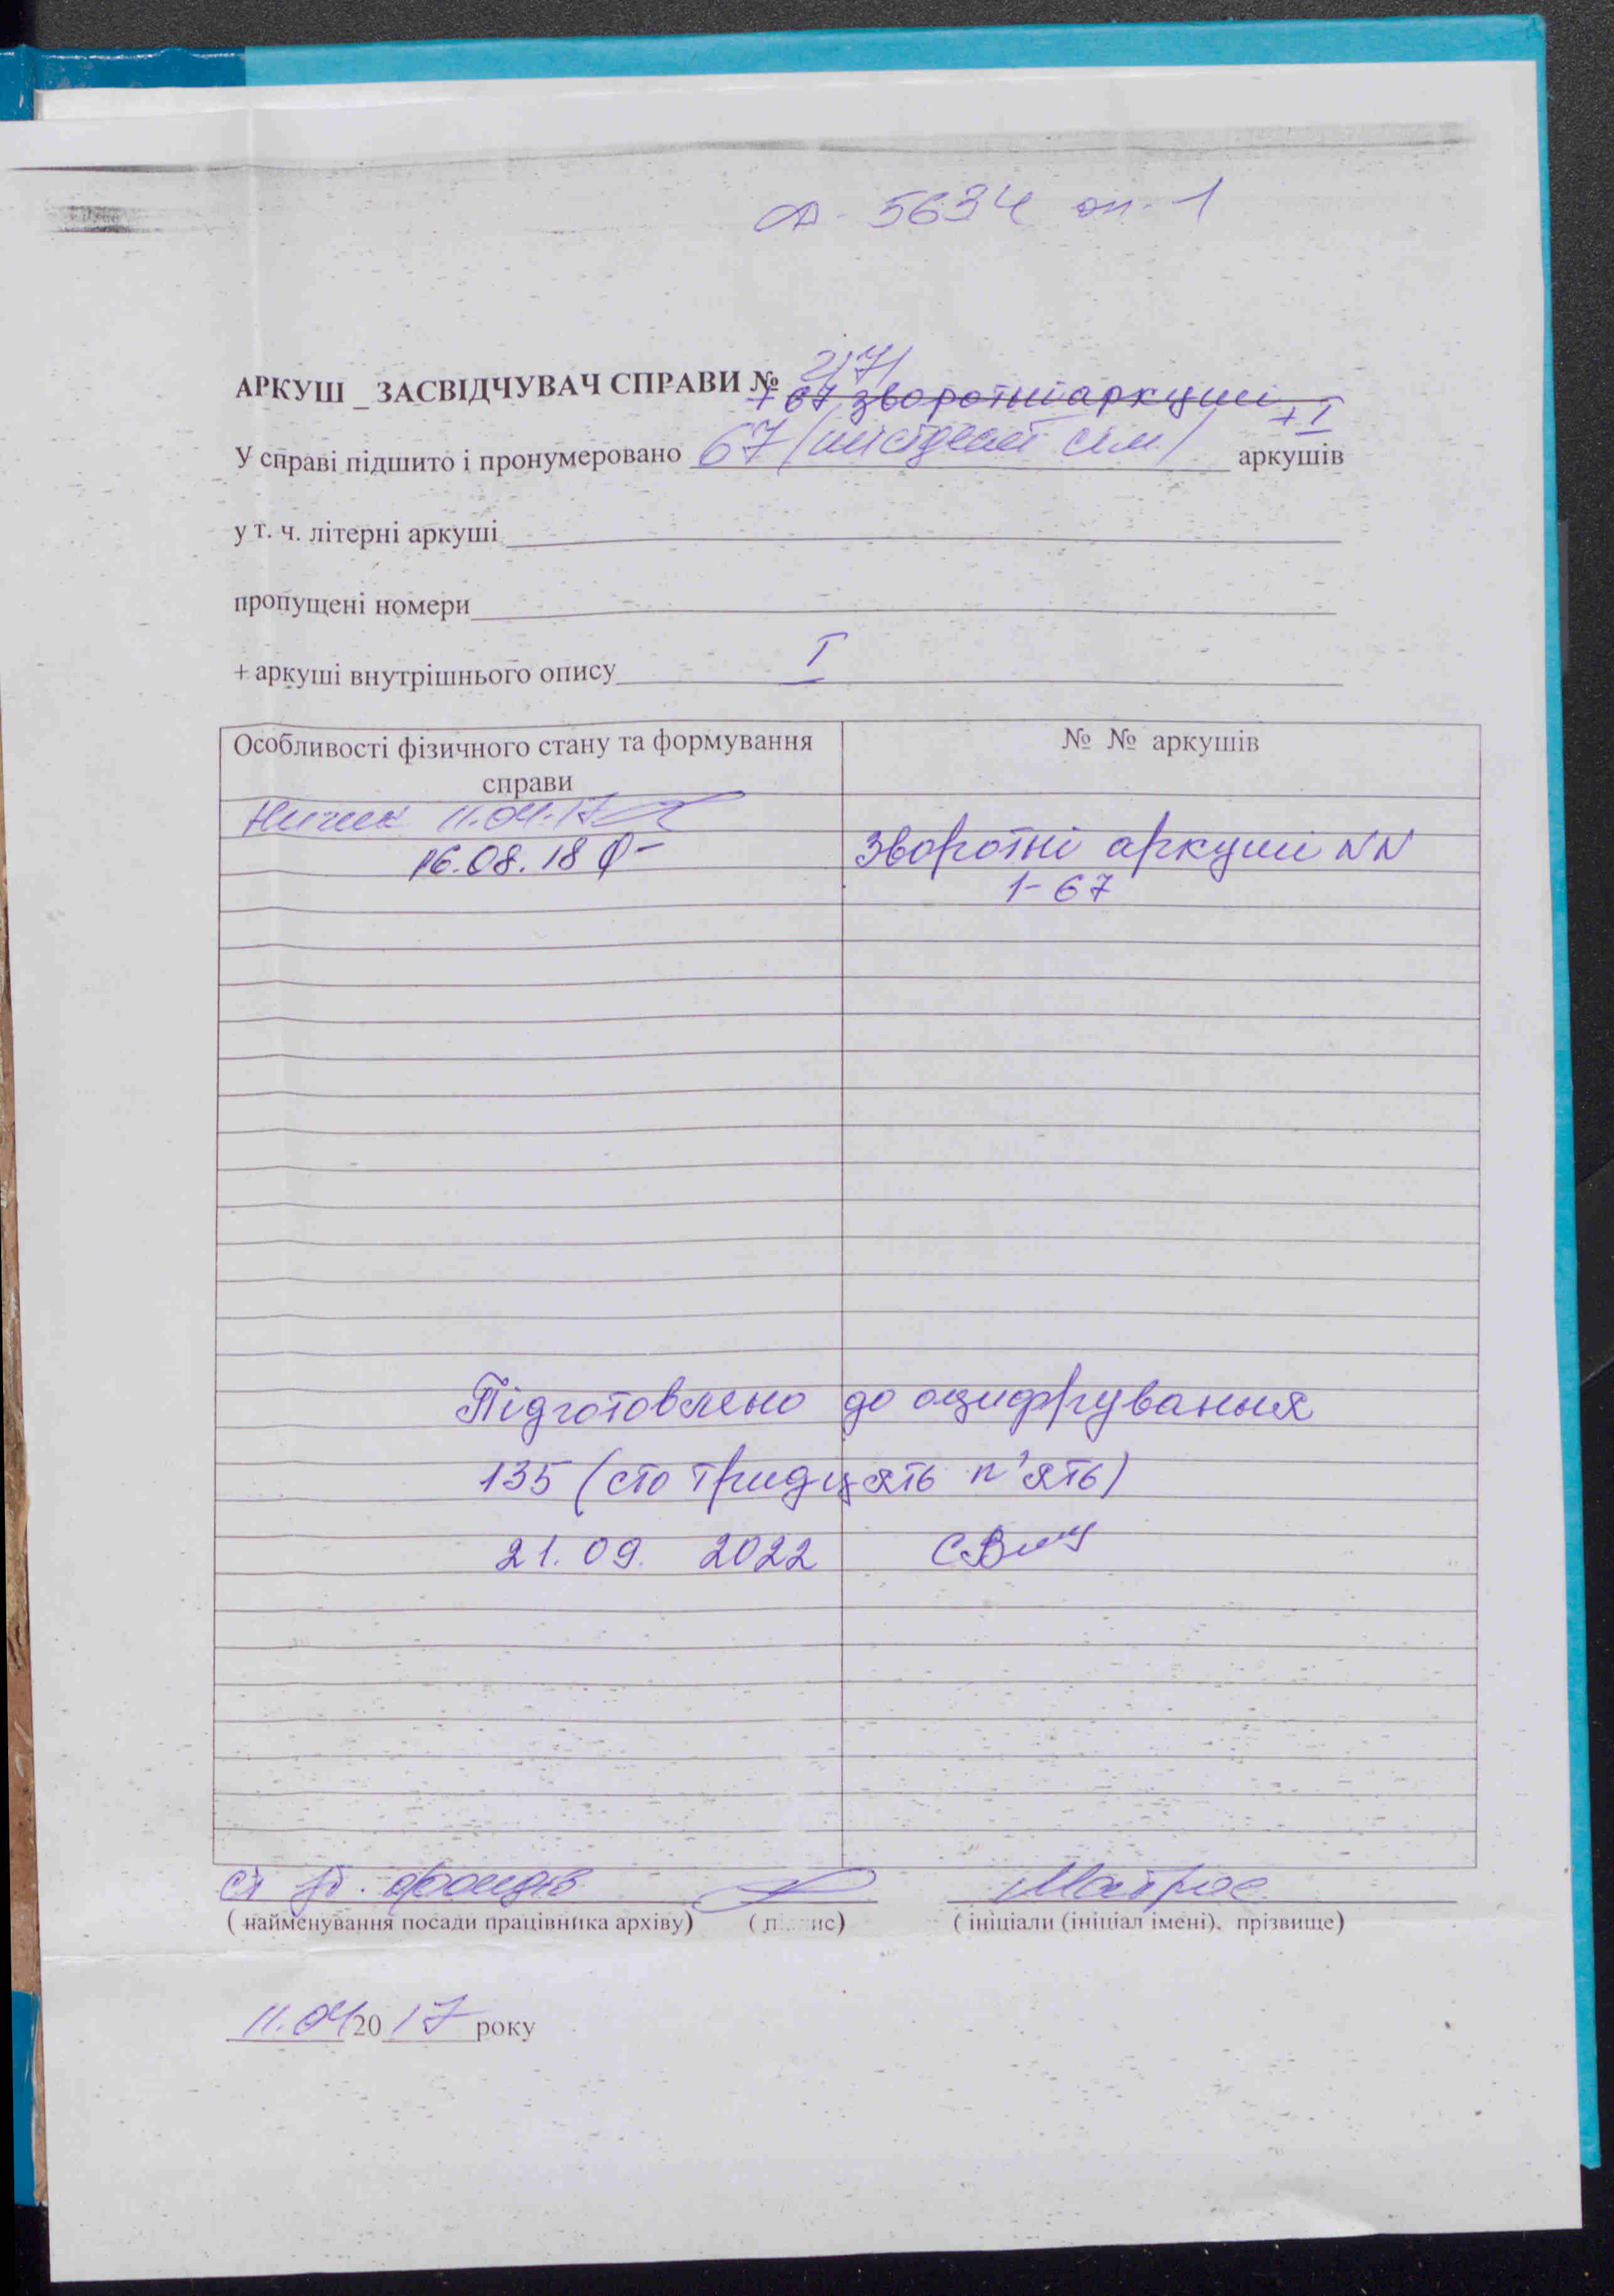 ф. 5634 оп. 1
АРКУШ _ ЗАСВІДЧУВАЧ СПРАВИ №
+ 67 зворотні аркуші + I
У справі підшито і пронумеровано 67 (шістдесят сім) аркушів
у т. ч. літерні аркуші
пропущені номери
+ аркуші внутрішнього опису I
Особливості фізичного стану та формування справи
№ № аркушів
11.04.17
16.08.18
Зворотні аркуші NN
1-67
Підготовлено до оцифрування
135 (сто тридцять п'ять)
21.09. 2022
фондів
( найменування посади працівника архіву) ( п ис) ( ініціали (ініціал імені), прізвище)
11.04 20 17 року